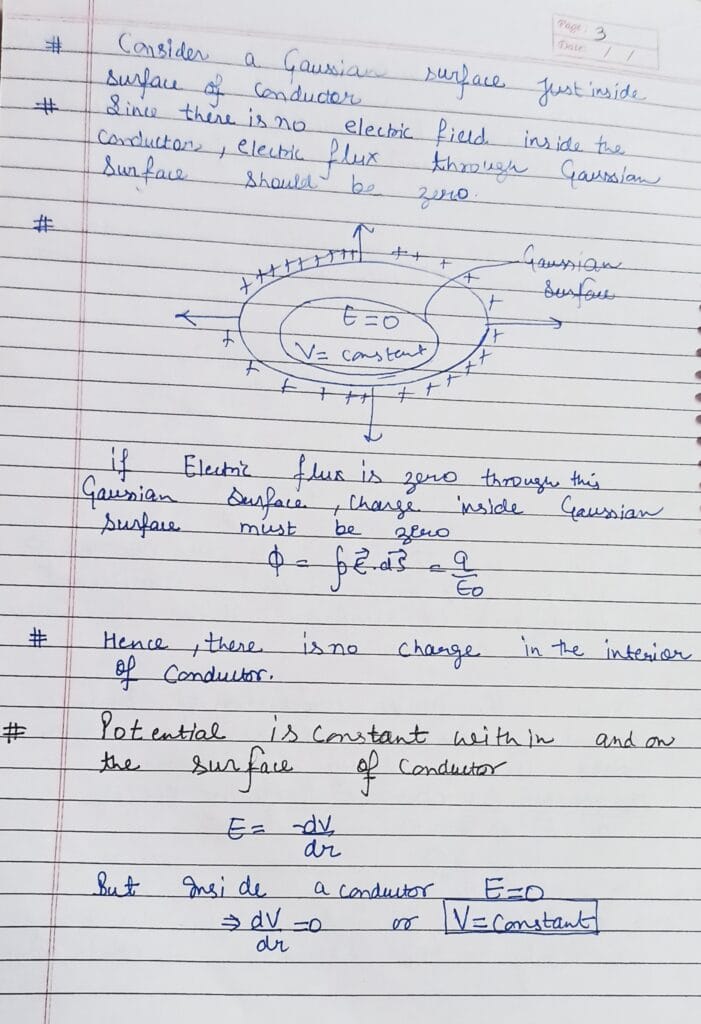 Page: 3
Date: / /
# Consider a Gaussian surface just inside
surface of conductor
# Since there is no electric field inside the
conductor, electric flux through Gaussian
Surface should be zero.
#
+++++++++++ + + + +
Gaussian
Surface
E=0
V= constant
if Electric flux is zero through this
Gaussian Surface, charge inside Gaussian
Surface must be zero
Φ = ∮E⃗.dS⃗ = q/ε0
# Hence, there is no charge in the interior
of Conductor.
# Potential is constant within and on
the surface of conductor
E = -dV/dr
But Inside a conductor E=0
⇒ dV/dr =0 or V= Constant